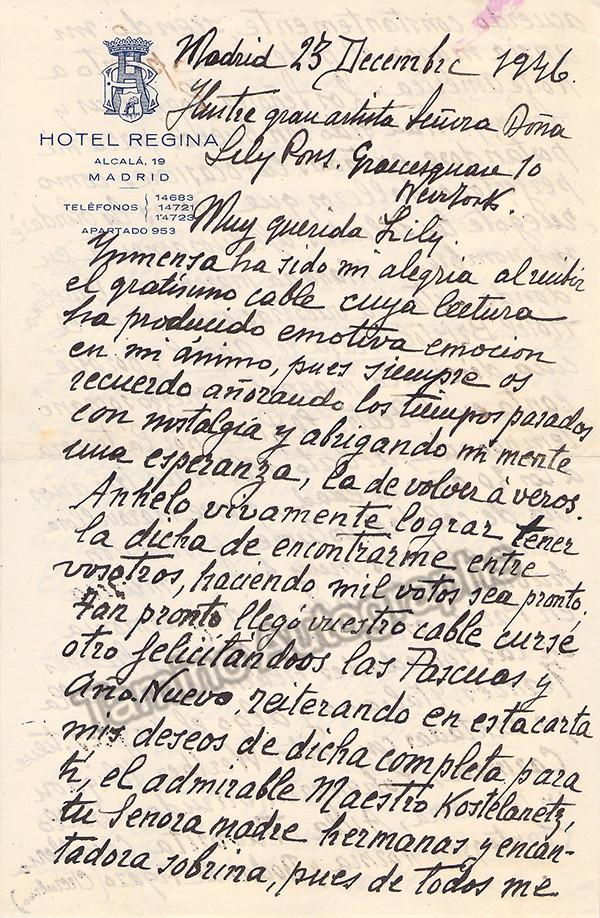 Madrid 23 Decembre 1946.
HOTEL REGINA
ALCALÁ, 19
MADRID
TELÉFONOS { 14683
14721
14723
APARTADO 953
Ilustre gran artista Señora Doña
Lily Pons. Gracesquare 10
New York.
Muy querida Lily.
Ynmensa ha sido mi alegria al recibir
el gratisimo cable cuya lectura
ha producido emotiva emocion
en mi ánimo, pues siempre os
recuerdo añorando los tiempos pasados
con nostalgía y abrigando mi mente
una esperanza, la de volver à veros.
Anhelo vivamente lograr tener
la dicha de encontrarme entre
vosotros, haciendo mil votos sea pronto.
Tan pronto llegó vuestro cable cursé
otro felicitándoos las Pascuas y
Año Nuevo, reiterando en esta carta
mis deseos de dicha completa para
ti, el admirable Maestro Kostelanetz,
tu Señora madre hermanas y encan-
tadora sobrina, pues de todos me
Tamino Autographs